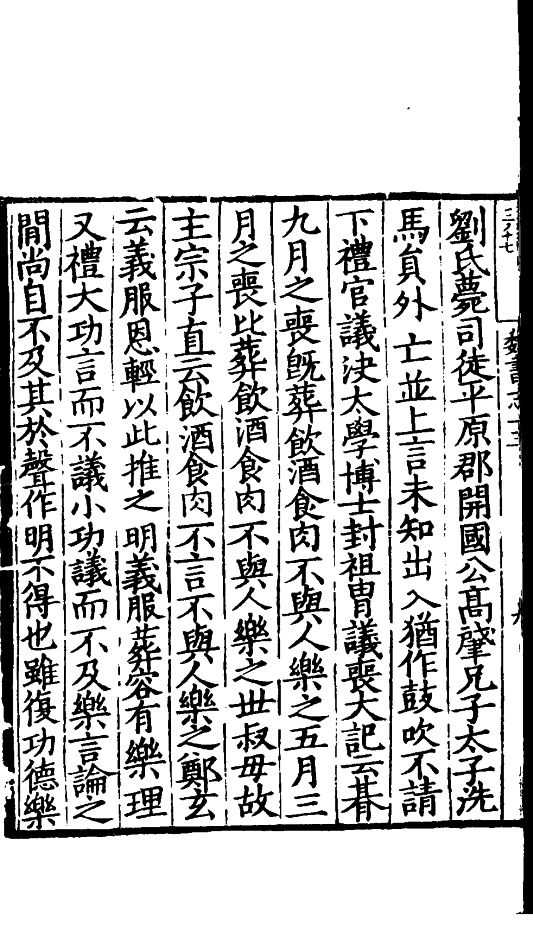 魏書志十三
劉氏薨司徒平原郡開國公髙肇兄子太子洗
馬貟外亡並上言未知出入猶作鼓吹不請
下禮官議决太學博士封祖胄議喪大記云朞
九月之喪旣葬飲酒食肉不與人樂之五月三
月之喪比葬飲酒食肉不與人樂之世叔母故
主宗子直云飲酒食肉不言不與人樂之鄭玄
云義服恩輕以此推之明義服葬容有樂理
又禮大功言而不議小功議而不及樂言論之
間尚自不及其於聲作明不得也雖復功德樂